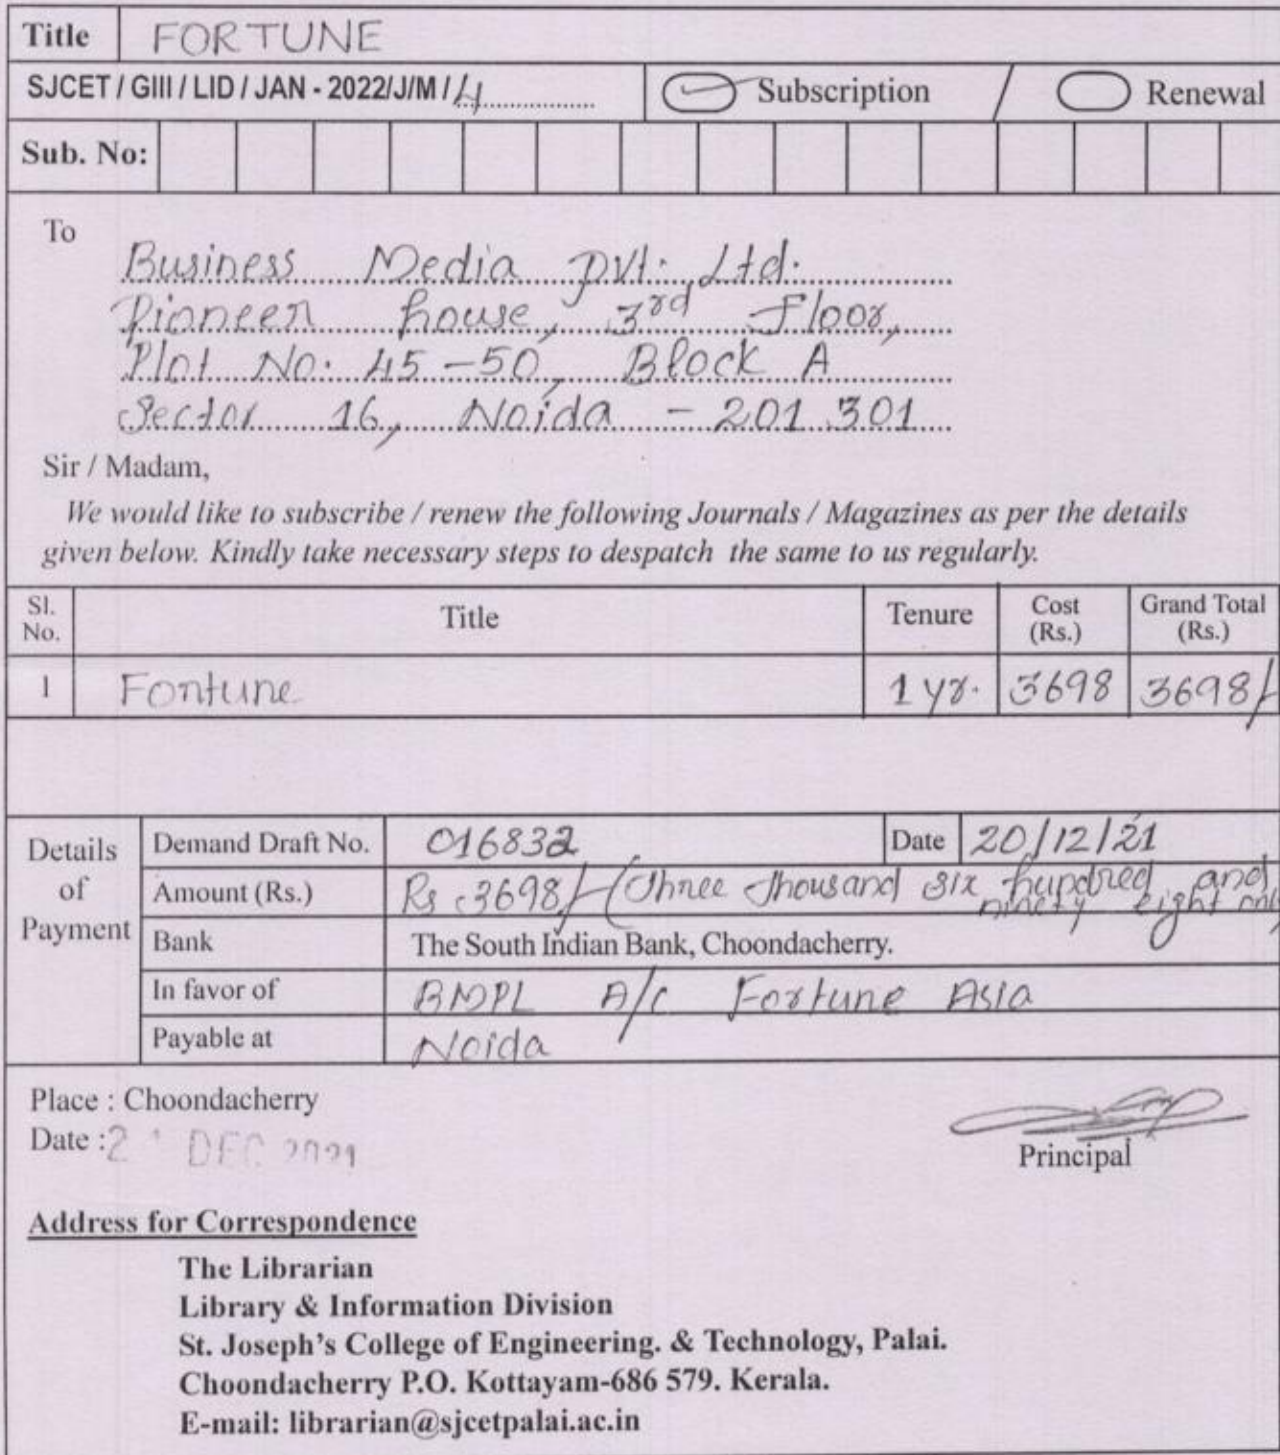 Title FORTUNE
SJCET / GIII / LID / JAN - 2022/J/M / 4 Subscription / Renewal
Sub. No:
To
Business Media Pvt. Ltd.
Pioneer house, 3rd Floor,
Plot No. 45-50, Block A
Sector 16, Noida - 201 301
Sir / Madam,
We would like to subscribe / renew the following Journals / Magazines as per the details
given below. Kindly take necessary steps to despatch the same to us regularly.
Sl. No. Title Tenure Cost (Rs.) Grand Total (Rs.)
1 Fortune 1 yr. 3698 3698/-
Details of Payment
Demand Draft No. 016832 Date 20/12/21
Amount (Rs.) Rs. 3698/- (Three Thousand six hundred and
ninety eight only
Bank The South Indian Bank, Choondacherry.
In favor of BMPL A/c Fortune Asia
Payable at Noida
Place : Choondacherry
Date : DEC 2021
Principal
Address for Correspondence
The Librarian
Library & Information Division
St. Joseph's College of Engineering. & Technology, Palai.
Choondacherry P.O. Kottayam-686 579. Kerala.
E-mail: librarian@sjcetpalai.ac.in